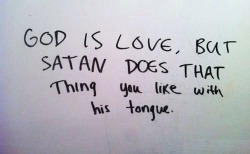 GOD IS LOVE, BUT
SATAN DOES THAT
Thing you like with
his tongue.